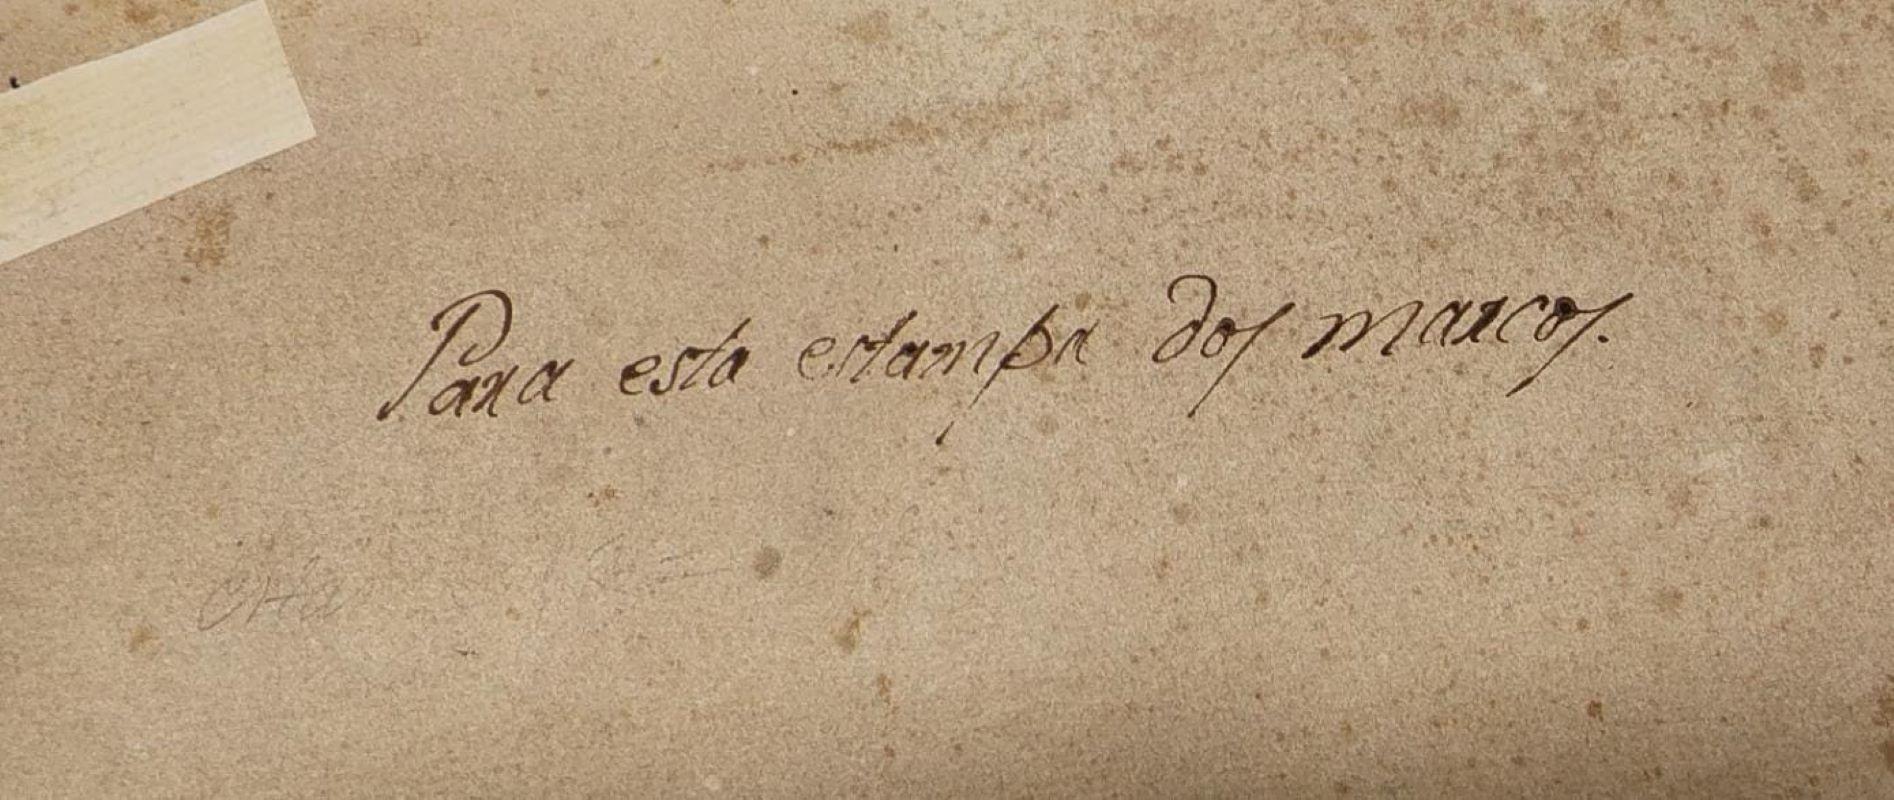 Para esta estampa dos marcos.